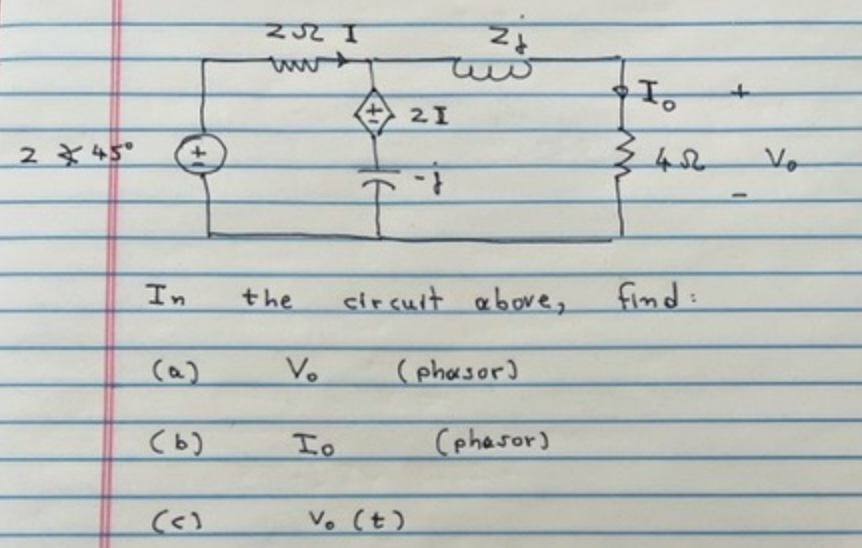 2 Ω I 2j
+ - 2 I I₀ +
2 ∡ 45° + - -j 4 Ω V₀
-
In the circuit above, find:
(a) V₀ (phasor)
(b) I₀ (phasor)
(c) V₀ (t)